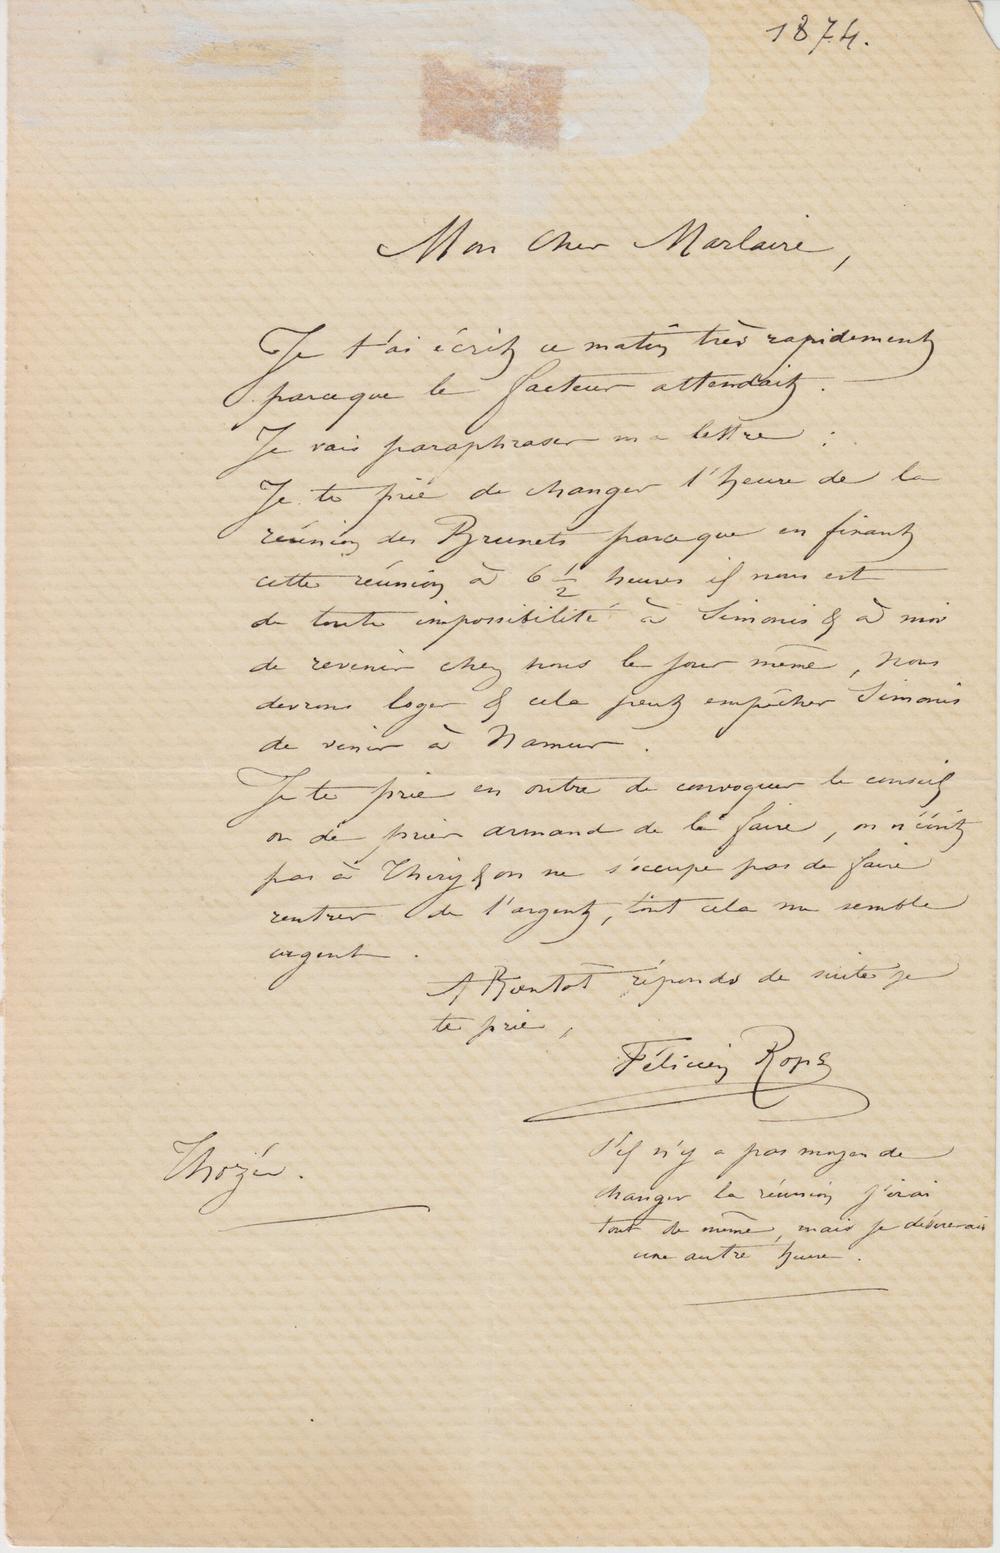 1874.
Mon Cher Marlaire,
Je t'ai écrit ce matin très rapidement
parceque le facteur attendait.
Je vais paraphraser ma lettre :
Je te prie de changer l'heure de la
réunion des Brunets parceque en finant
cette réunion à 6 ½ heures il nous est
de toute impossibilité à Simonis & à moi
de revenir chez nous le jour même, nous
devrons loger & cela peut empêcher Simonis
de venir à Namur.
Je te prie en outre de convoquer le conseil
ou de prier armand de le faire, on n'écrit
pas à Thiry & on ne s'occupe pas de faire
rentrer de l'argent, tout cela me semble
urgent.
A Bientôt réponds de suite je
te prie,
Félicien Rops
Thozée.
S'il n'y a pas moyen de
changer la réunion j'irai
tout de même, mais je désirerais
une autre heure.